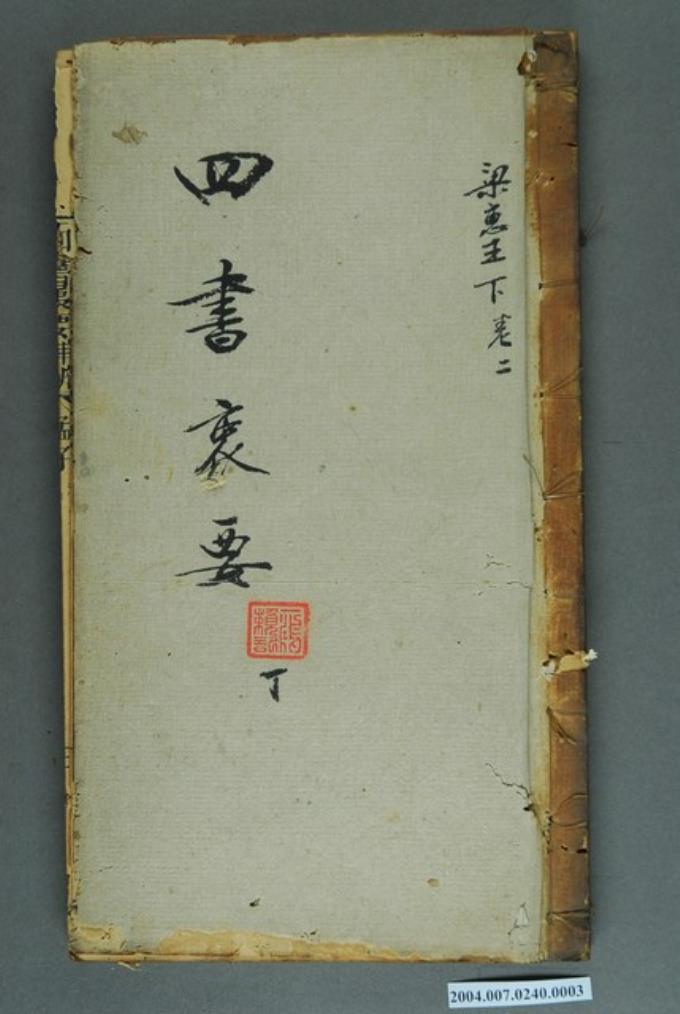 梁惠王下卷二
四書裏要
丁
2004.007.0240.0003